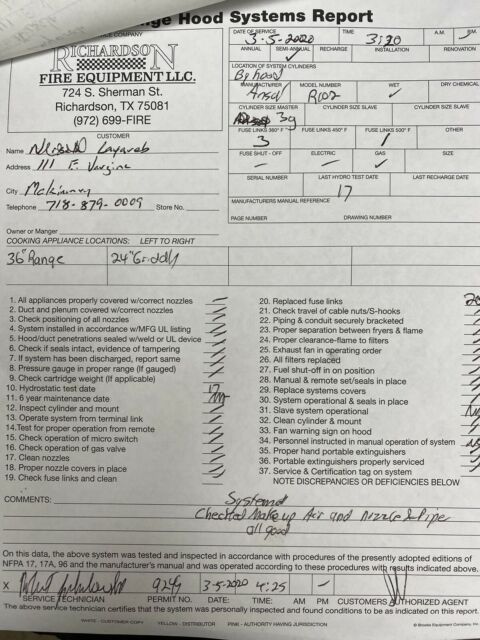 nge Hood Systems Report
CE COMPANY
RICHARDSON
FIRE EQUIPMENT LLC.
724 S. Sherman St.
Richardson, TX 75081
(972) 699-FIRE
DATE OF SERVICE 3-5-2020 TIME 3:20 A.M. P.M.
ANNUAL SEMI-ANNUAL RECHARGE INSTALLATION RENOVATION
LOCATION OF SYSTEM CYLINDERS
By hood
MANUFACTURER MODEL NUMBER WET DRY CHEMICAL
Ansul R102 ✓
CYLINDER SIZE MASTER CYLINDER SIZE SLAVE CYLINDER SIZE SLAVE
3g
FUSE LINKS 360° F FUSE LINKS 450° F FUSE LINKS 500° F OTHER
3 1
FUSE SHUT - OFF ELECTRIC GAS SIZE
— — ✓
SERIAL NUMBER LAST HYDRO TEST DATE LAST RECHARGE DATE
17
MANUFACTURERS MANUAL REFERENCE
PAGE NUMBER DRAWING NUMBER
CUSTOMER
Name
Address 111 E. Virgina
City Mckinney
Telephone 718-879-0009 Store No.
Owner or Manger
COOKING APPLIANCE LOCATIONS: LEFT TO RIGHT
36" Range 24" Griddly
1. All appliances properly covered w/correct nozzles
2. Duct and plenum covered w/correct nozzles
3. Check positioning of all nozzles
4. System installed in accordance w/MFG UL listing
5. Hood/duct penetrations sealed w/weld or UL device
6. Check if seals intact, evidence of tampering
7. If system has been discharged, report same
8. Pressure gauge in proper range (If gauged)
9. Check cartridge weight (If applicable)
10. Hydrostatic test date 17
11. 6 year maintenance date
12. Inspect cylinder and mount
13. Operate system from terminal link
14. Test for proper operation from remote
15. Check operation of micro switch
16. Check operation of gas valve
17. Clean nozzles
18. Proper nozzle covers in place
19. Check fuse links and clean
20. Replaced fuse links
21. Check travel of cable nuts/S-hooks
22. Piping & conduit securely bracketed
23. Proper separation between fryers & flame
24. Proper clearance-flame to filters
25. Exhaust fan in operating order
26. All filters replaced
27. Fuel shut-off in on position
28. Manual & remote set/seals in place
29. Replace systems covers
30. System operational & seals in place
31. Slave system operational
32. Clean cylinder & mount
33. Fan warning sign on hood
34. Personnel instructed in manual operation of system
35. Proper hand portable extinguishers
36. Portable extinguishers properly serviced
37. Service & Certification tag on system
NOTE DISCREPANCIES OR DEFICIENCIES BELOW
COMMENTS: Systems
Checked Make up Air and Nozzle & Pipe
all good
On this data, the above system was tested and inspected in accordance with procedures of the presently adopted editions of
NFPA 17, 17A, 96 and the manufacturer's manual and was operated according to these procedures with results indicated above.
X 3-5-2020 4:25 —
SERVICE TECHNICIAN PERMIT NO. DATE: TIME: AM PM CUSTOMERS AUTHORIZED AGENT
The above service technician certifies that the system was personally inspected and found conditions to be as indicated on this report.
WHITE - CUSTOMER COPY YELLOW - DISTRIBUTOR PINK - AUTHORITY HAVING JURISDICTION © Brooks Equipment Company, Inc.